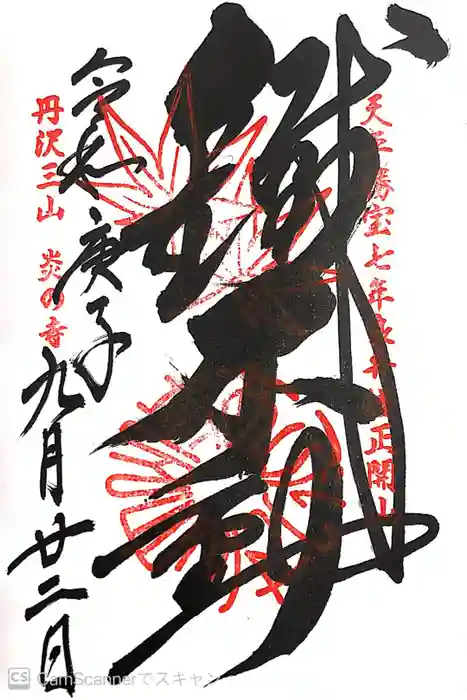 天平勝宝七年良弁僧正開山
鐵不動
令和庚子
九月廿二日
丹沢三山 炎の寺
CS CamScannerでスキャン